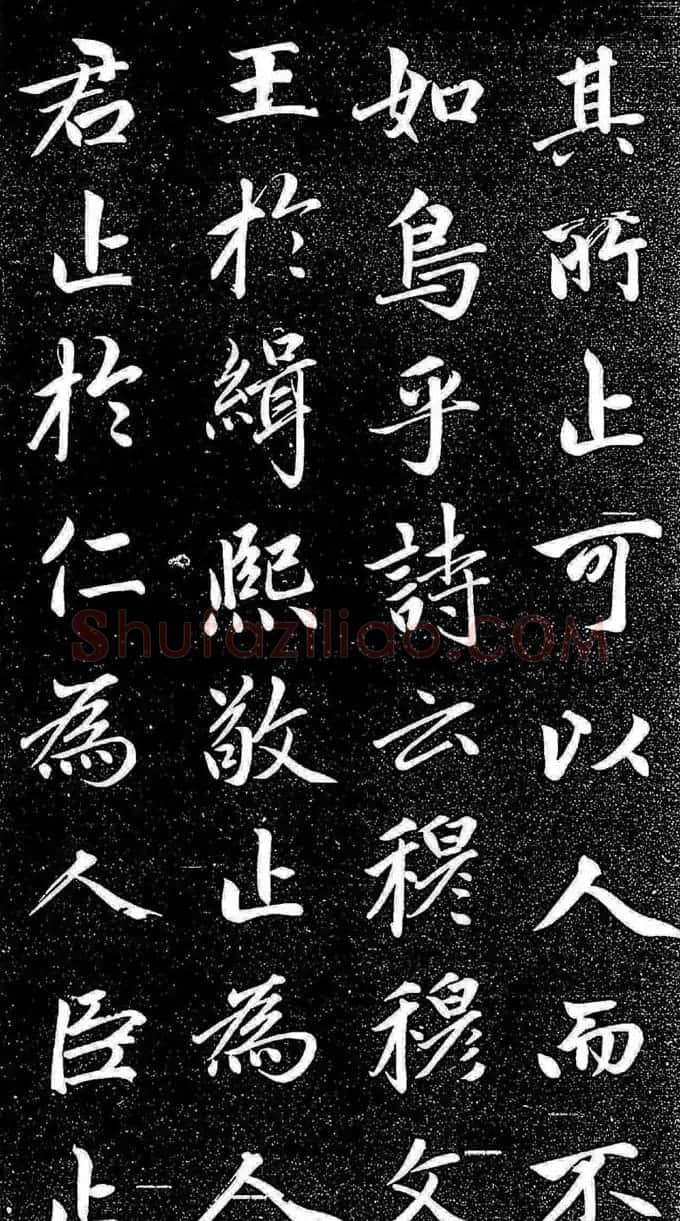 其所止可以人而不
如鳥乎詩云穆穆文
王於緝熙敬止為人
君止於仁為人臣止
Shufaziliao.COM